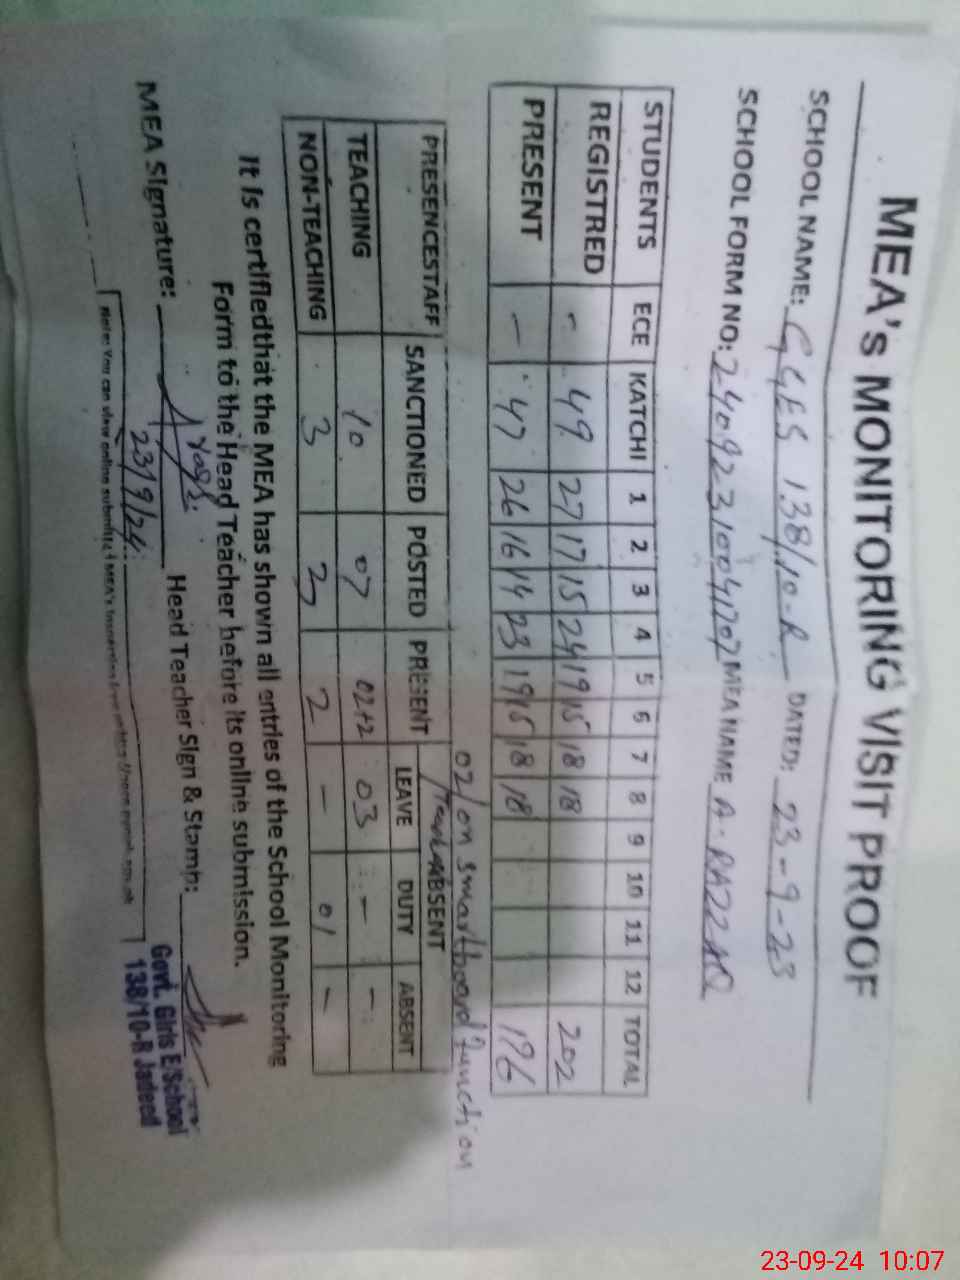 MEA's MONITORING VISIT PROOF
SCHOOL NAME: GGES 138/10-R DATED: 23-9-23
SCHOOL FORM NO: MEA NAME A. RAZZAQ
STUDENTS ECE KATCHI 1 2 3 4 5 6 7 8 9 10 11 12 TOTAL
REGISTRED - 49 27 17 15 24 19 15 18 18 202
PRESENT - 47 26 16 14 23 19 15 18 18 196
02/on smartboard function
PRESENCESTAFF SANCTIONED POSTED PRESENT ABSENT
LEAVE DUTY ABSENT
TEACHING 10 07 02+2 03 - -
NON-TEACHING 3 3 2 - 01 -
It is certifiedthat the MEA has shown all entries of the School Monitoring
Form to the Head Teacher before its online submission.
MEA Signature: Head Teacher Sign & Stamp:
23/9/24
Govt. Girls E/School
138/10-R Jadeed
Note: You can view online submitted MEA's
23-09-24 10:07